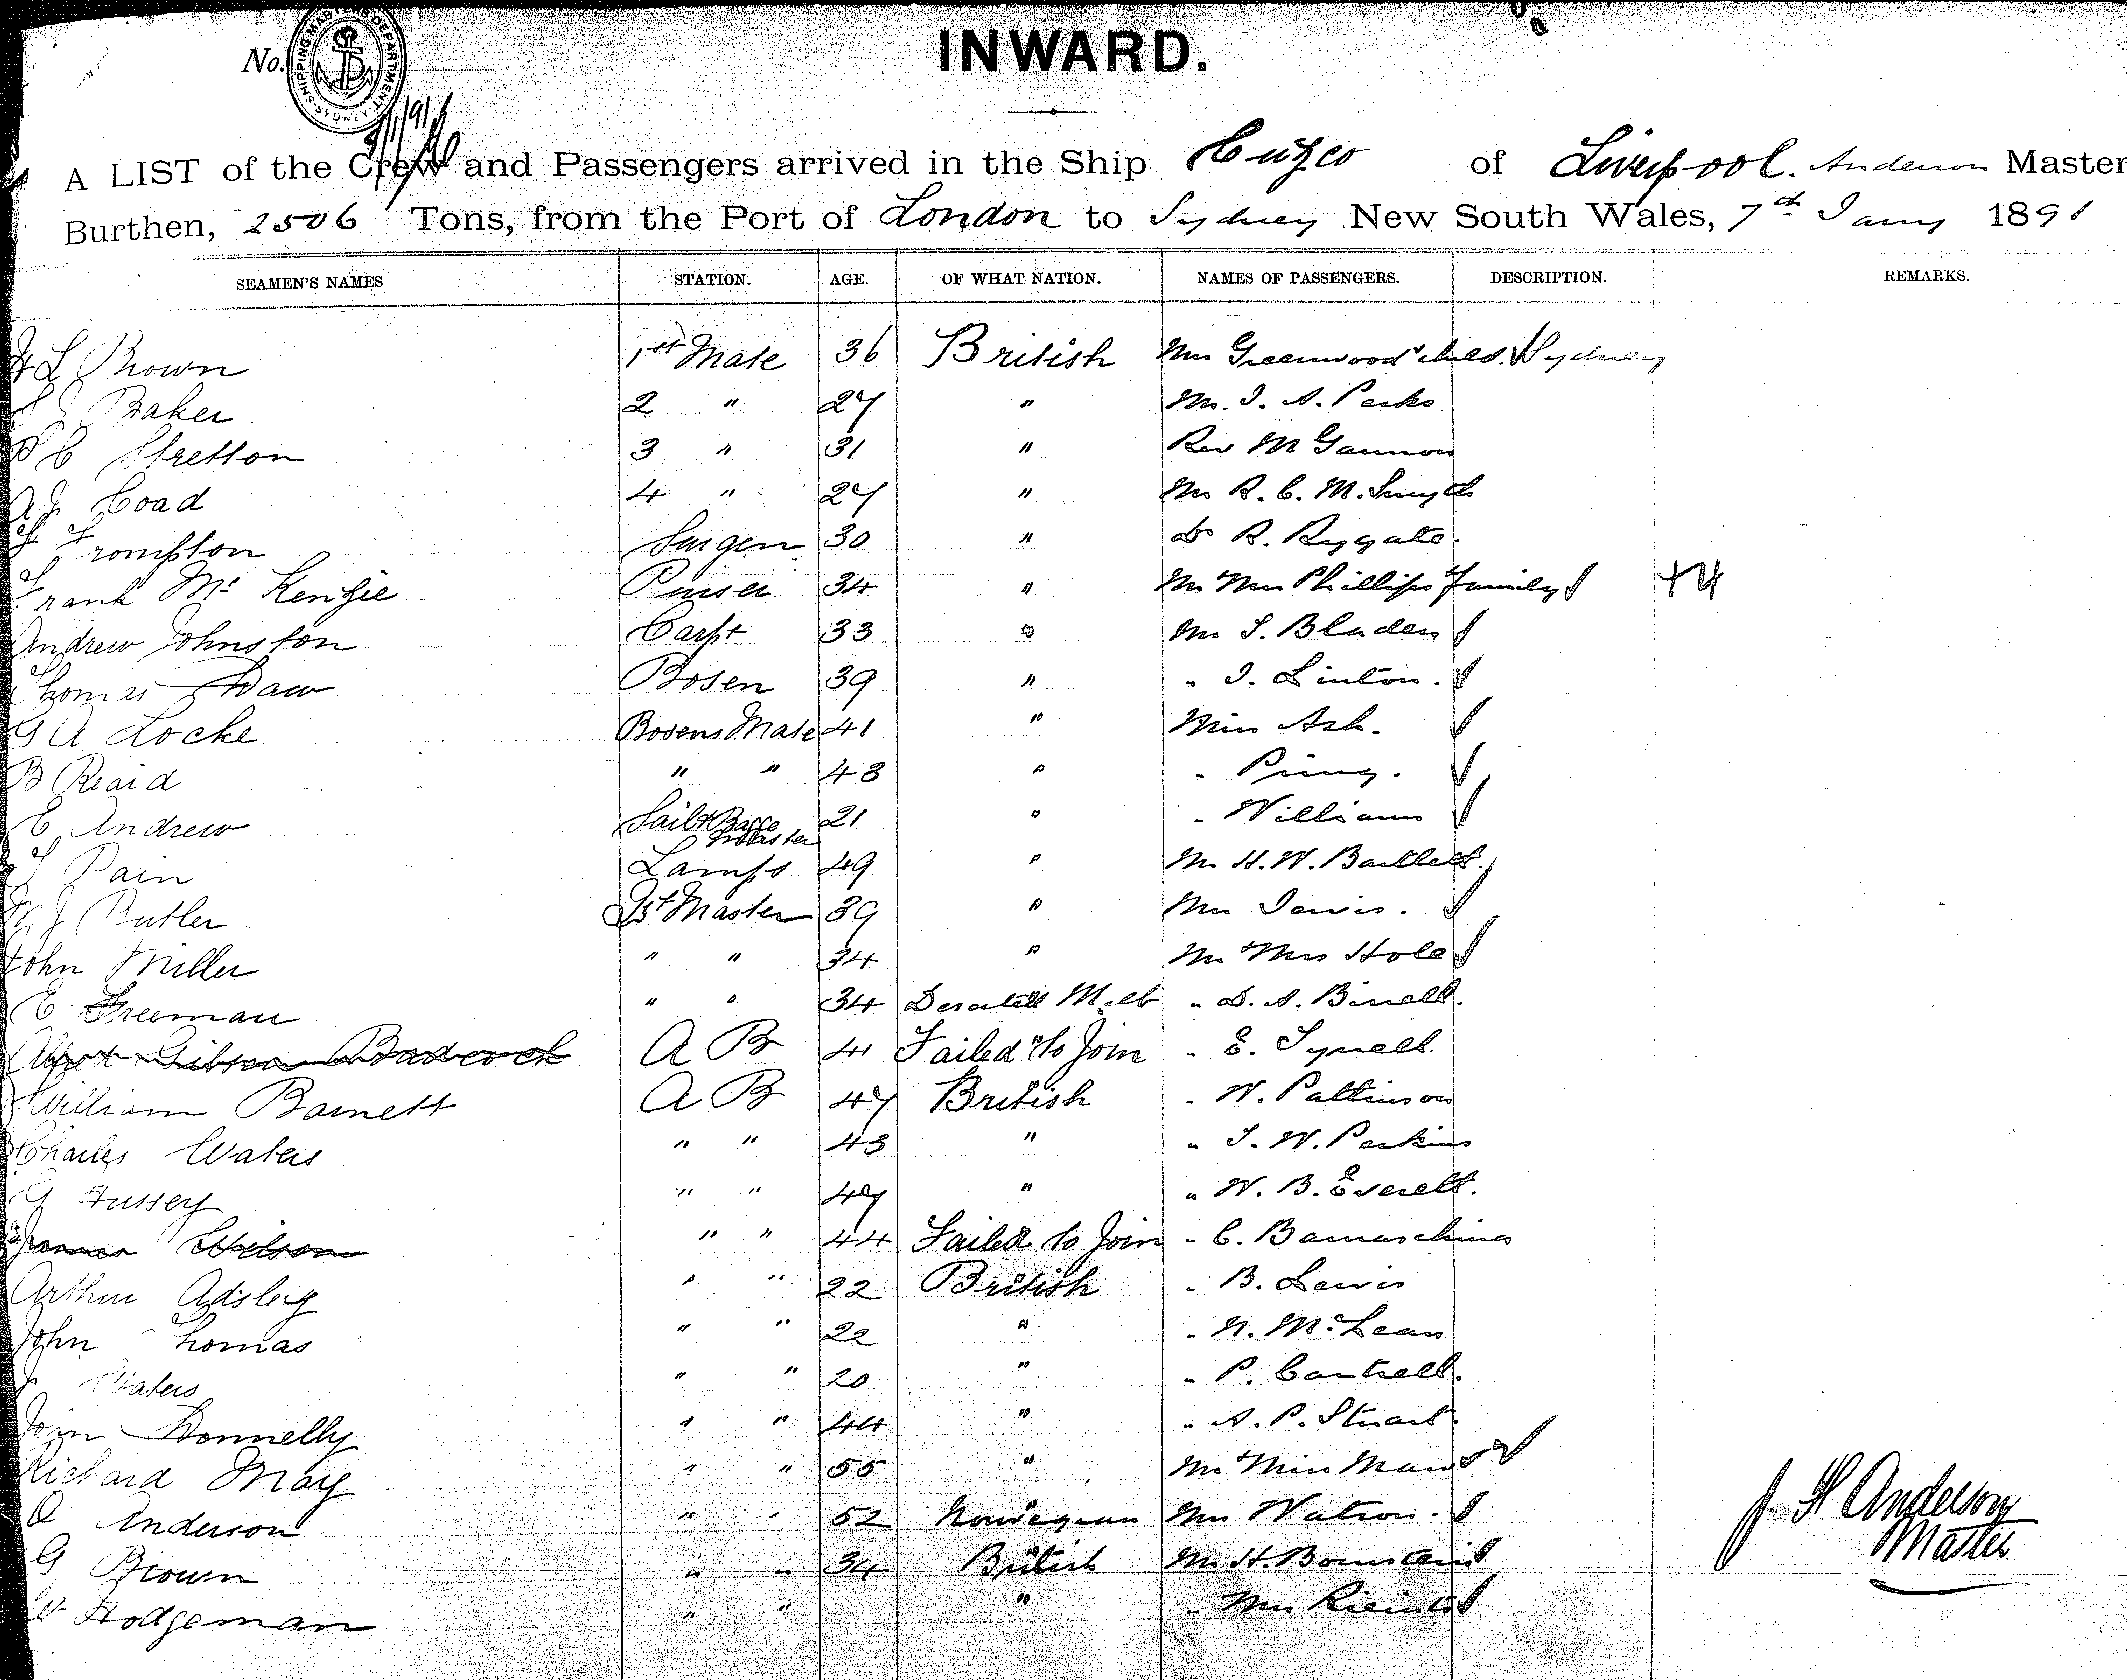 No.
SHIPPING MASTER'S DEPARTMENT SYDNEY
INWARD.
A LIST of the Crew and Passengers arrived in the Ship Cuzco of Liverpool. Anderson Master
Burthen, 2506 Tons, from the Port of London to Sydney New South Wales, 7th Jany 1891
SEAMEN'S NAMES STATION. AGE. OF WHAT NATION. NAMES OF PASSENGERS. DESCRIPTION. REMARKS.
L Brown 1st Mate 36 British Mrs Greenwood & child Sydney
Baker 2 " 27 " Mr. J. A. Parks
C Stretton 3 " 31 " Rev M Gannon
A J Coad 4 " 27 " Mr R. C. M. Smyth
F Frompton Surgen 30 " Dr R. Rygate.
Frank Mc Kenzie Purser 34 " Mr & Mrs Phillips & family
Andrew Johnston Carpt 33 " Mr S. Bladen
Thomas Daw Bosen 39 " " J. Linton.
G A Locke Bosens Mate 41 " Miss Ash.
B Reaid " " 43 " "
E Andrew Sail & Bagge Master 21 " " Williams
Pain Lamps 49 " Mr H. W. Bartlett.
J Butler Qt Master 39 " Mrs
John Miller " " 34 " Mr & Mrs Hole
E Freeman " " 34 Deserted Melb " D. A.
Gibson Badcock A B 41 Failed to Join " E. Tyrrell
William Barnett A B 47 British " W. Pattinson
Charles Waters " " 43 " " J. W. Perkins
G Hussey " " 49 " " W. B. Everett.
Wilson " " 44 Failed to Join " C.
Arthur Adsley " " 22 British " B. Lewis
John Thomas " " 22 " " N. McLean
Waters " " 20 " " P. Cantrell.
John Donnelly " " 44 " " A. P. Stuart
Richard May " " 55 " Mr & Miss
Anderson " " 52 Norwegian Mrs Watson.
G Brown " " 34 British Mr H.
W Hodgeman " " " " Mrs
J H Anderson
Master